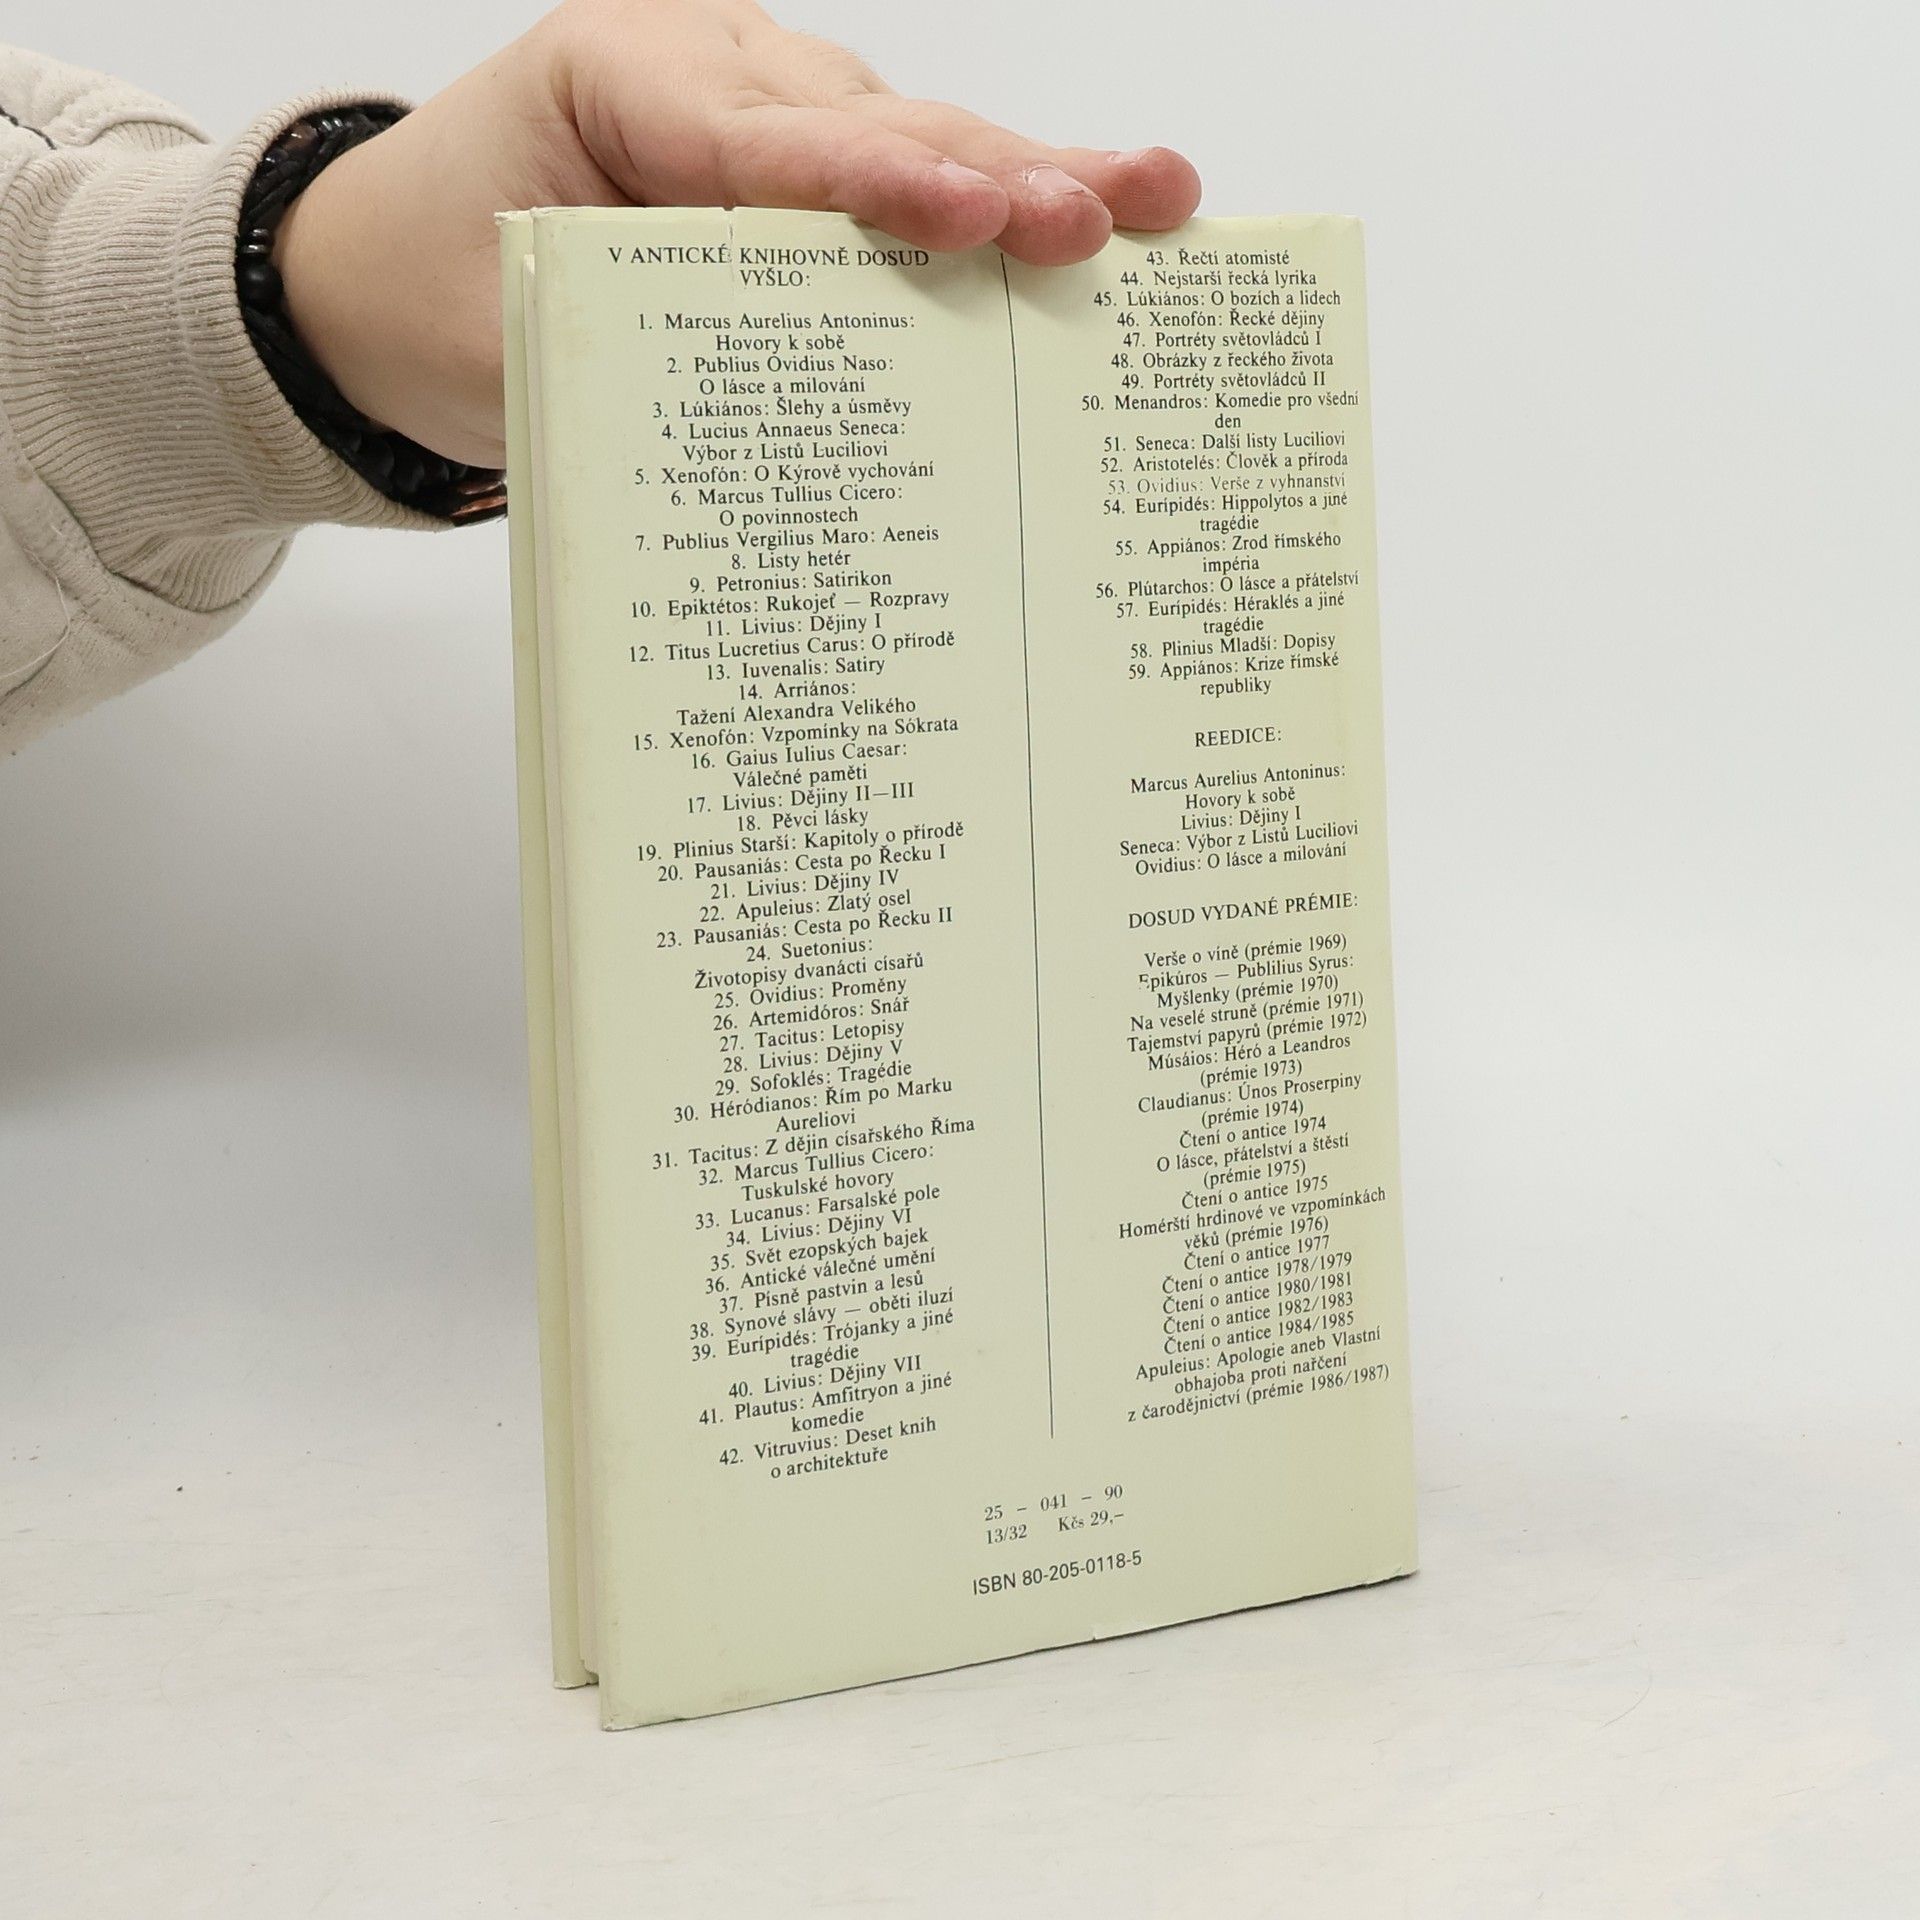 V ANTICKÉ KNIHOVNĚ DOSUD
VYŠLO:
1. Marcus Aurelius Antoninus:
Hovory k sobě
2. Publius Ovidius Naso:
O lásce a milování
3. Lúkiános: Šlehy a úsměvy
4. Lucius Annaeus Seneca:
Výbor z Listů Luciliovi
5. Xenofón: O Kýrově vychování
6. Marcus Tullius Cicero:
O povinnostech
7. Publius Vergilius Maro: Aeneis
8. Listy hetér
9. Petronius: Satirikon
10. Epiktétos: Rukojeť — Rozpravy
11. Livius: Dějiny I
12. Titus Lucretius Carus: O přírodě
13. Iuvenalis: Satiry
14. Arriános:
Tažení Alexandra Velikého
15. Xenofón: Vzpomínky na Sókrata
16. Gaius Iulius Caesar:
Válečné paměti
17. Livius: Dějiny II—III
18. Pěvci lásky
19. Plinius Starší: Kapitoly o přírodě
20. Pausaniás: Cesta po Řecku I
21. Livius: Dějiny IV
22. Apuleius: Zlatý osel
23. Pausaniás: Cesta po Řecku II
24. Suetonius:
Životopisy dvanácti císařů
25. Ovidius: Proměny
26. Artemidóros: Snář
27. Tacitus: Letopisy
28. Livius: Dějiny V
29. Sofoklés: Tragédie
30. Héródianos: Řím po Marku
Aureliovi
31. Tacitus: Z dějin císařského Říma
32. Marcus Tullius Cicero:
Tuskulské hovory
33. Lucanus: Farsalské pole
34. Livius: Dějiny VI
35. Svět ezopských bajek
36. Antické válečné umění
37. Písně pastvin a lesů
38. Synové slávy — oběti iluzí
39. Eurípidés: Trójanky a jiné
tragédie
40. Livius: Dějiny VII
41. Plautus: Amfitryon a jiné
komedie
42. Vitruvius: Deset knih
o architektuře
43. Řečtí atomisté
44. Nejstarší řecká lyrika
45. Lúkiános: O bozích a lidech
46. Xenofón: Řecké dějiny
47. Portréty světovládců I
48. Obrázky z řeckého života
49. Portréty světovládců II
50. Menandros: Komedie pro všední
den
51. Seneca: Další listy Luciliovi
52. Aristotelés: Člověk a příroda
53. Ovidius: Verše z vyhnanství
54. Eurípidés: Hippolytos a jiné
tragédie
55. Appiános: Zrod římského
impéria
56. Plútarchos: O lásce a přátelství
57. Eurípidés: Héraklés a jiné
tragédie
58. Plinius Mladší: Dopisy
59. Appiános: Krize římské
republiky
REEDICE:
Marcus Aurelius Antoninus:
Hovory k sobě
Livius: Dějiny I
Seneca: Výbor z Listů Luciliovi
Ovidius: O lásce a milování
DOSUD VYDANÉ PRÉMIE:
Verše o víně (prémie 1969)
Epikúros — Publilius Syrus:
Myšlenky (prémie 1970)
Na veselé struně (prémie 1971)
Tajemství papyrů (prémie 1972)
Músáios: Héró a Leandros
(prémie 1973)
Claudianus: Únos Proserpiny
(prémie 1974)
Čtení o antice 1974
O lásce, přátelství a štěstí
(prémie 1975)
Čtení o antice 1975
Homérští hrdinové ve vzpomínkách
věků (prémie 1976)
Čtení o antice 1977
Čtení o antice 1978/1979
Čtení o antice 1980/1981
Čtení o antice 1982/1983
Čtení o antice 1984/1985
Apuleius: Apologie aneb Vlastní
obhajoba proti nařčení
z čarodějnictví (prémie 1986/1987)
25 – 041 – 90
13/32 Kčs 29,–
ISBN 80-205-0118-5